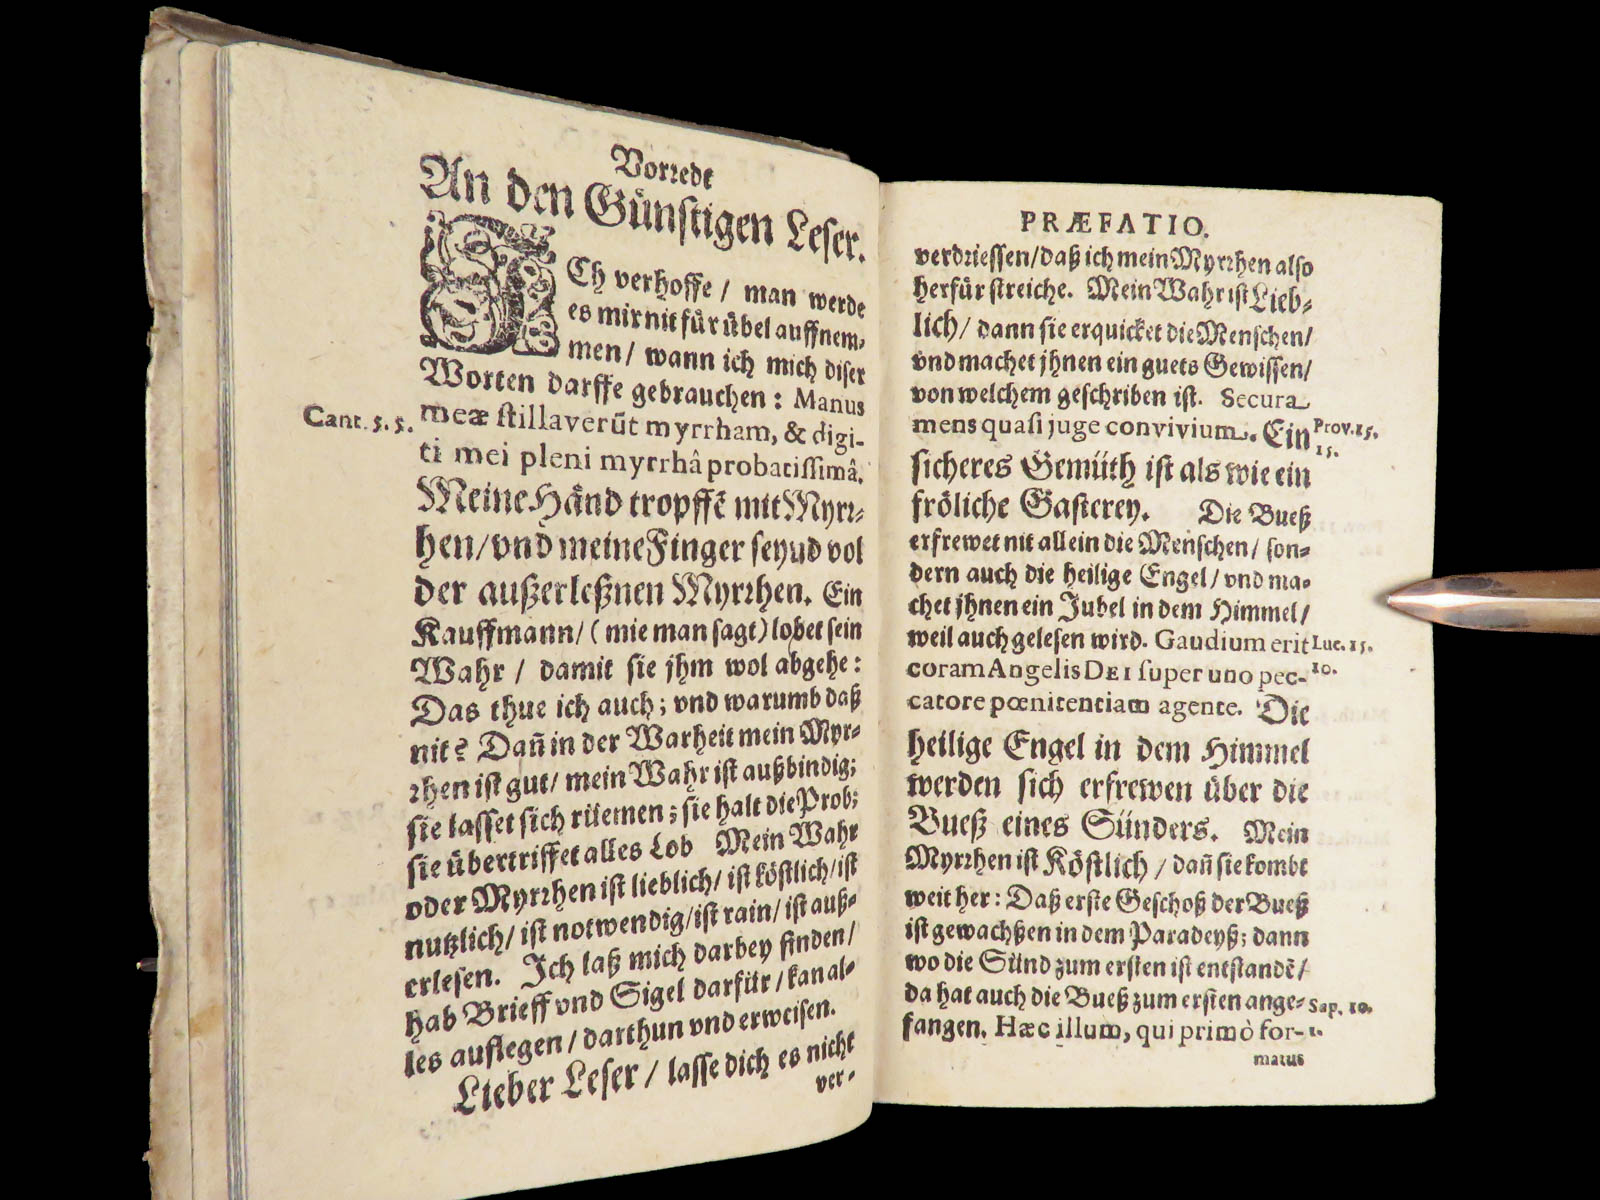 Vorrede
An den Günstigen Leser.
ICh verhoffe / man werde
es mir nit für übel auffnem-
men / wann ich mich diser
Worten darffe gebrauchen : Manus
Cant. 5. 5.
meæ stillaverũt myrrham, & digi-
ti mei pleni myrrhâ probatissimâ.
Meine Händ tropffẽ mit Myrr-
hen / vnd meine Finger seynd vol
der außerleßnen Myrrhen. Ein
Kauffmann / (wie man sagt) lobet sein
Wahr / damit sie jhm wol abgehe :
Das thue ich auch ; vnd warumb daß
nit ? Dañ in der Warheit mein Myr-
rhen ist gut / mein Wahr ist außbindig ;
sie lasset sich rüemen ; sie halt die Prob ;
sie übertriffet alles Lob Mein Wahr
oder Myrrhen ist lieblich / ist köstlich / ist
nutzlich / ist notwendig / ist rain / ist auß-
erlesen. Ich laß mich darbey finden /
hab Brieff vnd Sigel darfür / kan al-
les auflegen / darthun vnd erweisen.
Lieber Leser / lasse dich es nicht
ver-
PRÆFATIO.
verdriessen / daß ich mein Myrrhen also
herfür streiche. Mein Wahr ist Lieb-
lich / dann sie erquicket die Menschen /
vnd machet jhnen ein guets Gewissen /
von welchem geschriben ist. Secura
mens quasi juge convivium. Ein
Prov. 15.
15.
sicheres Gemüth ist als wie ein
fröliche Gasterey. Die Bueß
erfrewet nit allein die Menschen / son-
dern auch die heilige Engel / vnd ma-
chet jhnen ein Jubel in dem Himmel /
weil auch gelesen wird. Gaudium erit
Luc. 15.
10.
coram Angelis DEI super uno pec-
catore pœnitentiam agente. Die
heilige Engel in dem Himmel
werden sich erfrewen über die
Bueß eines Sünders. Mein
Myrrhen ist Köstlich / dañ sie kombt
weit her : Daß erste Geschoß der Bueß
ist gewachßen in dem Paradeyß ; dann
wo die Sünd zum ersten ist entstandẽ /
da hat auch die Bueß zum ersten ange-
Sap. 10.
1.
fangen. Hæc illum, qui primò for-
matus